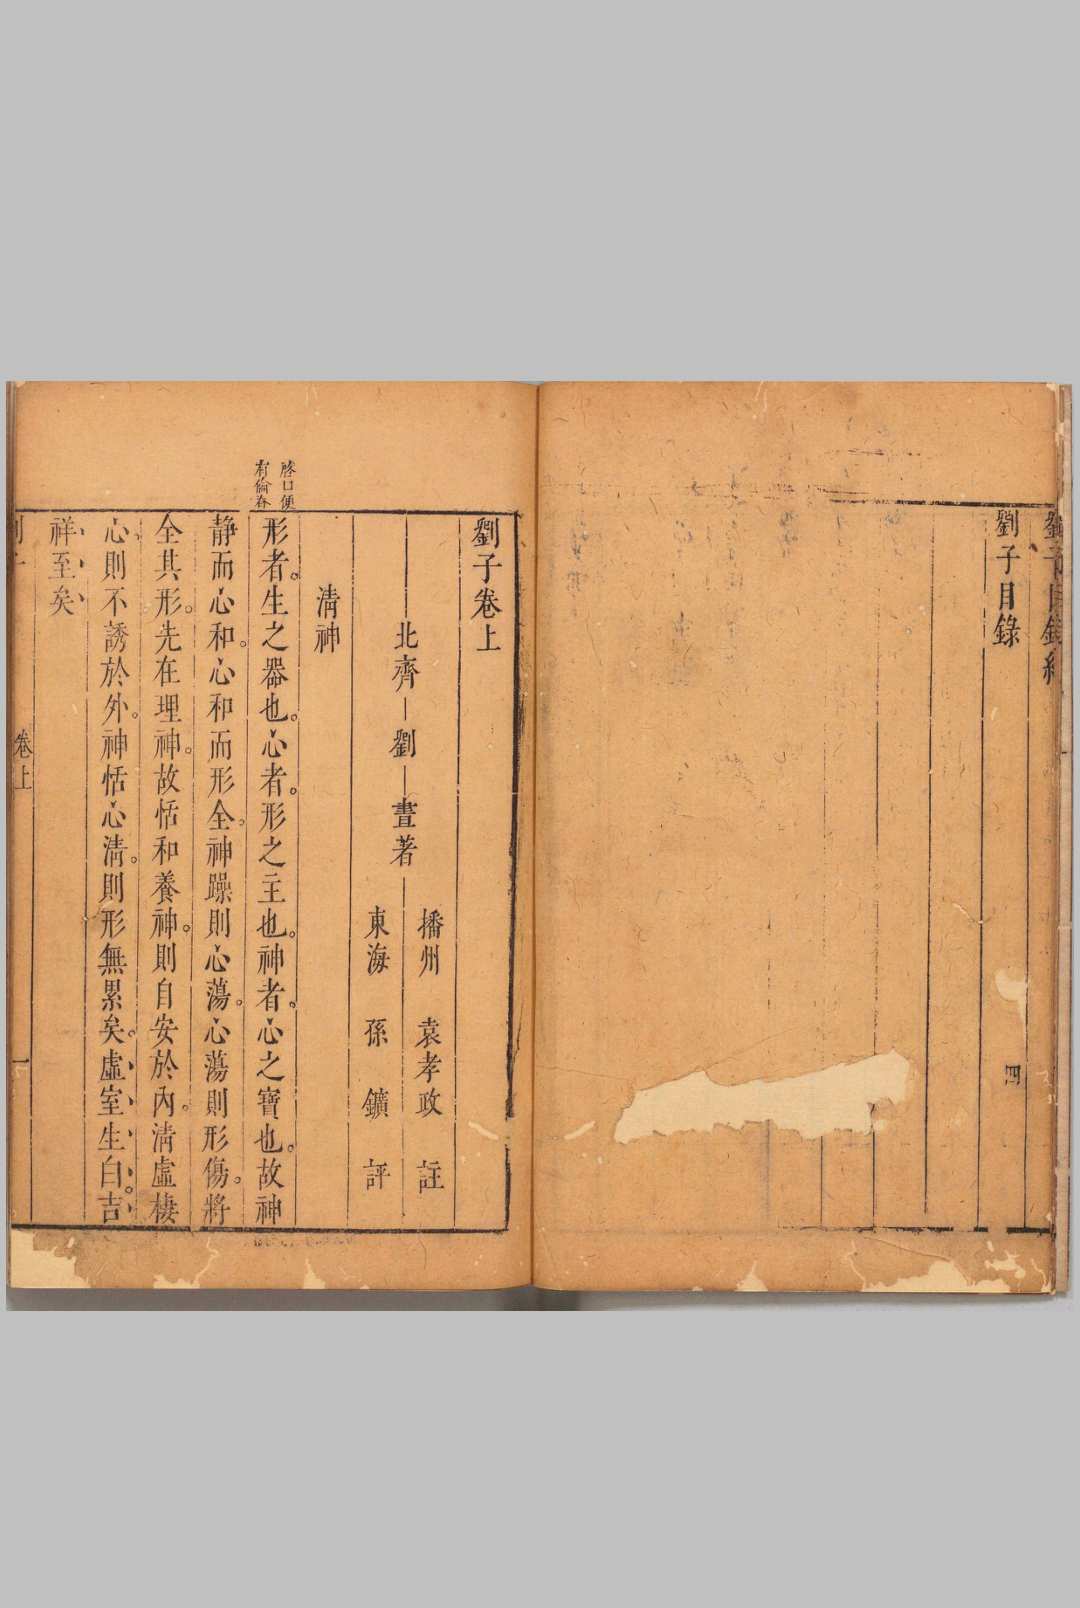 劉子目錄終
劉子目錄
四
劉子卷上
播州 袁孝政 註
北齊 劉 晝著
東海 孫 鑛 評
清神
啓口便
有倫脊
形者。生之器也。心者。形之主也。神者。心之寶也。故神
靜而心和。心和而形全。神躁則心蕩。心蕩則形傷。將
全其形。先在理神。故恬和養神。則自安於內。清虛棲
心則不誘於外。神恬心清。則形無累矣。虛室生白。吉
祥至矣
劉子
卷上
一